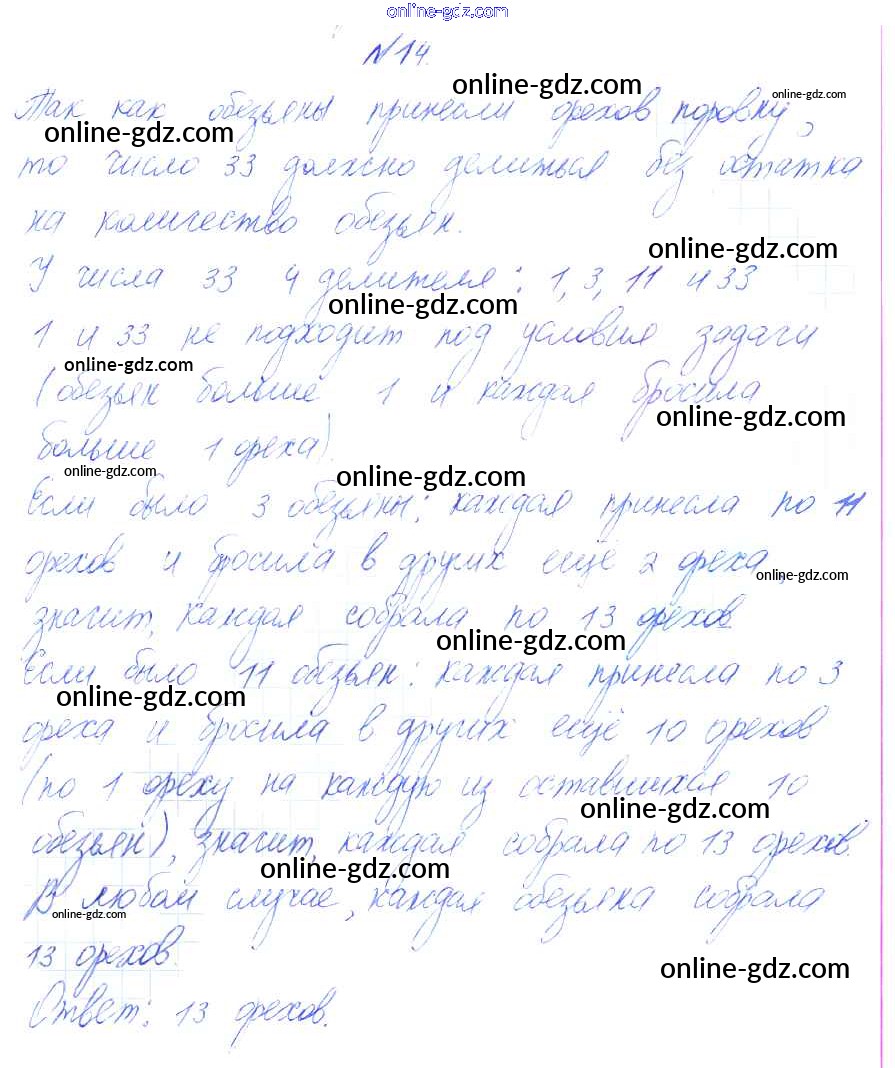 online-gdz.com
№14.
online-gdz.com
Так как обезьяны принесли орехов поровну,
online-gdz.com
online-gdz.com
то число 33 должно делиться без остатка
на количество обезьян.
online-gdz.com
У числа 33 4 делителя: 1, 3, 11 и 33
online-gdz.com
1 и 33 не подходит под условие задачи
online-gdz.com
(обезьян больше 1 и каждая бросила
online-gdz.com
больше 1 ореха).
online-gdz.com
online-gdz.com
Если было 3 обезьяны: каждая принесла по 11
орехов и бросила в других ещё 2 ореха,
online-gdz.com
значит, каждая собрала по 13 орехов.
online-gdz.com
Если было 11 обезьян: каждая принесла по 3
online-gdz.com
ореха и бросила в других ещё 10 орехов
(по 1 ореху на каждую из оставшихся 10
online-gdz.com
обезьян), значит, каждая собрала по 13 орехов.
online-gdz.com
В любом случае, каждая обезьяна собрала
online-gdz.com
13 орехов.
online-gdz.com
Ответ: 13 орехов.